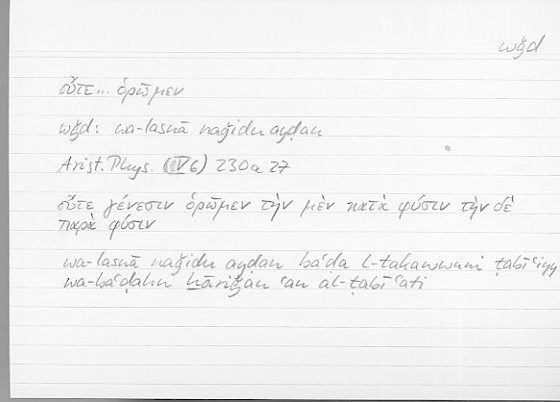 wǧd
οὔτε... ὁρῶμεν
wǧd: wa-lasnā naǧidu ayḍan
Arist. Phys. (V6) 230a 27
οὔτε γένεσιν ὁρῶμεν τὴν μὲν κατὰ φύσιν τὴν δὲ
παρὰ φύσιν
wa-lasnā naǧidu ayḍan baʿḍa l-takawwuni ṭabīʿiyy
wa-baʿḍahu ḫāriǧan ʿan al-ṭabīʿati